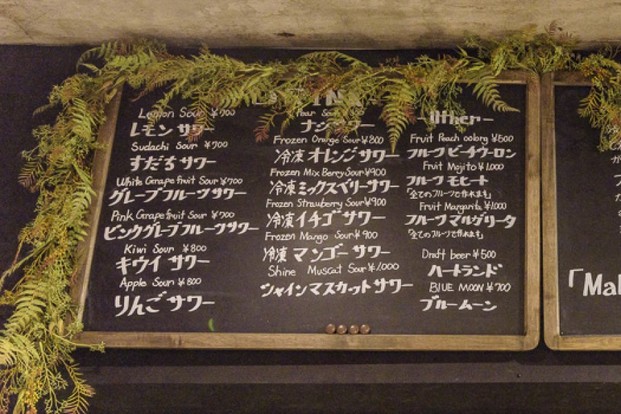 Lemon Sour ¥700
レモン サワー
Sudachi Sour ¥700
すだち サワー
White Grapefruit Sour ¥700
グレープフルーツサワー
Pink Grapefruit Sour ¥700
ピンクグレープフルーツサワー
Kiwi Sour ¥800
キウイ サワー
Apple Sour ¥800
りんご サワー
Pear Sour
ナシ サワー
Frozen Orange Sour ¥800
冷凍 オレンジ サワー
Frozen Mix Berry Sour ¥900
冷凍 ミックスベリーサワー
Frozen Strawberry Sour ¥900
冷凍 イチゴ サワー
Frozen Mango Sour ¥900
冷凍 マンゴー サワー
Shine Muscat Sour ¥1,000
シャインマスカット サワー
Other
Fruit Peach oolong ¥500
フルーツ ピーチウーロン
Fruit Mojito ¥1,000
フルーツ モヒート
「全てのフルーツで作れます」
Fruit Margarita ¥1,000
フルーツ マルゲリータ
「全てのフルーツで作れます」
Draft beer ¥500
ハートランド
BLUE MOON ¥700
ブルームーン